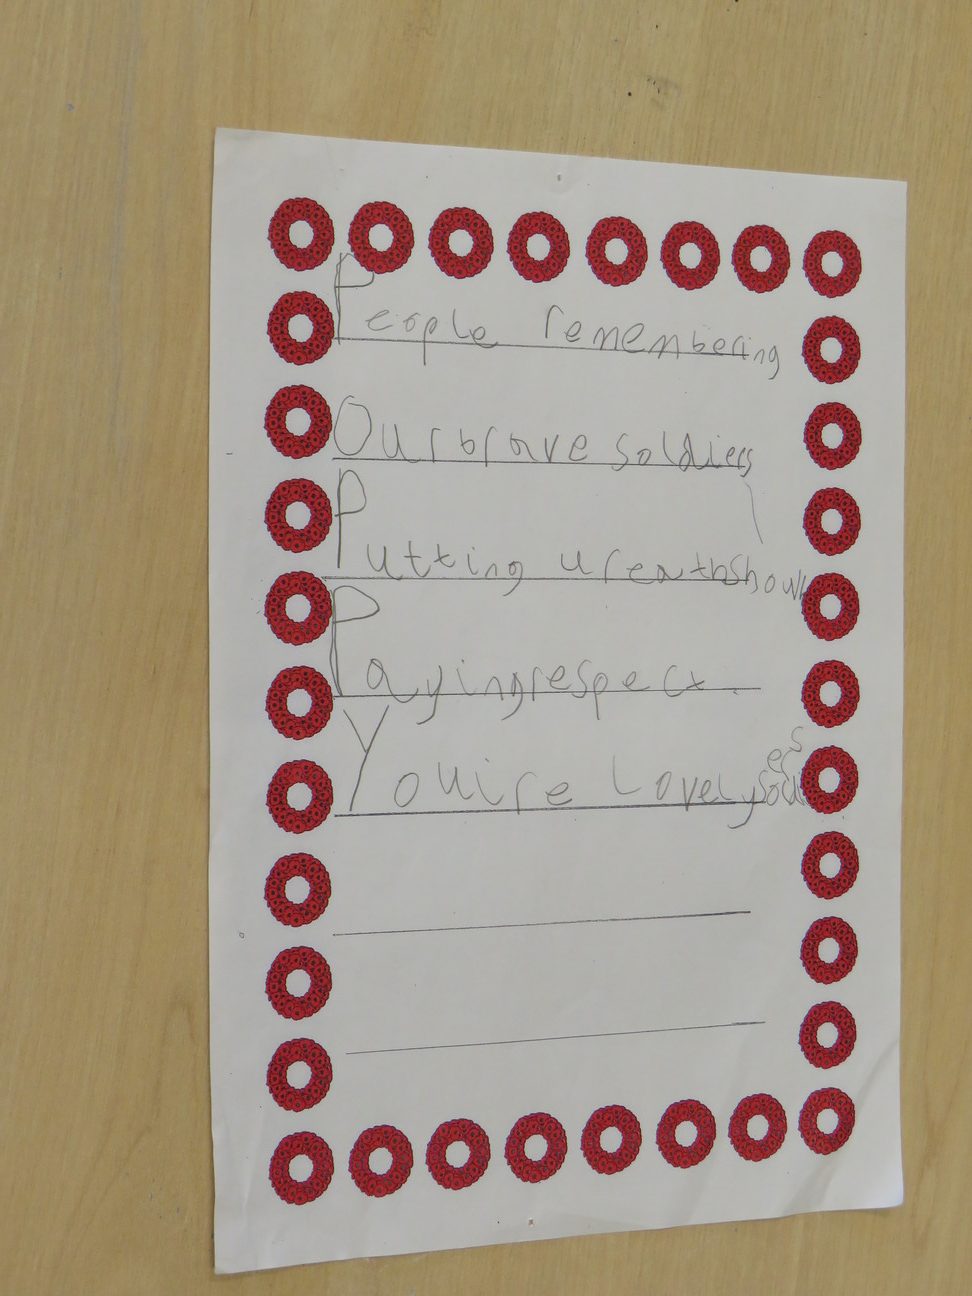 People remembering
Our brave soldiers
Putting ureaths
Paying respect.
You're lovely